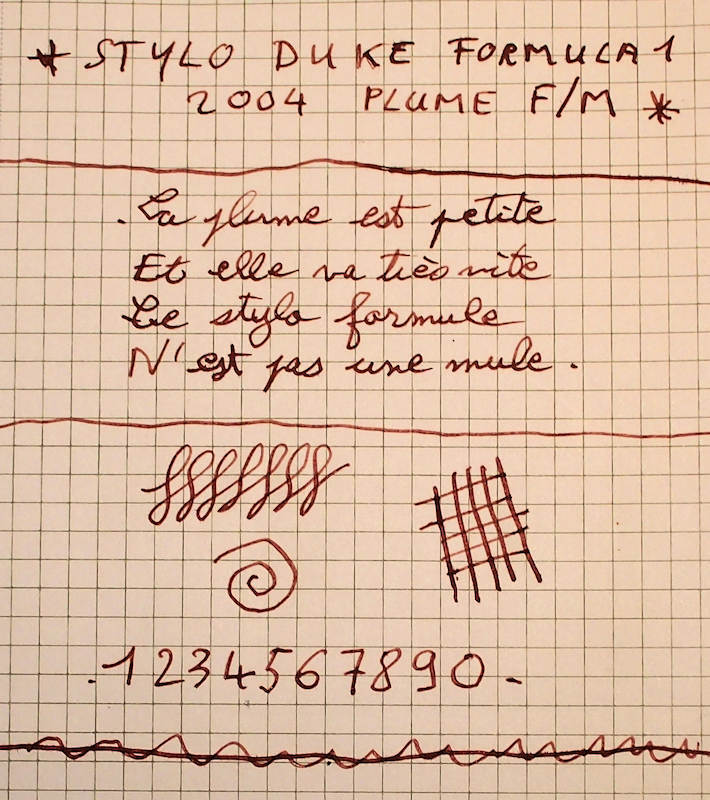 * STYLO DUKE FORMULA 1
2004 PLUME F/M *
. La plume est petite
Et elle va très vite
Le stylo formule
N'est pas une mule .
. 1 2 3 4 5 6 7 8 9 0 .